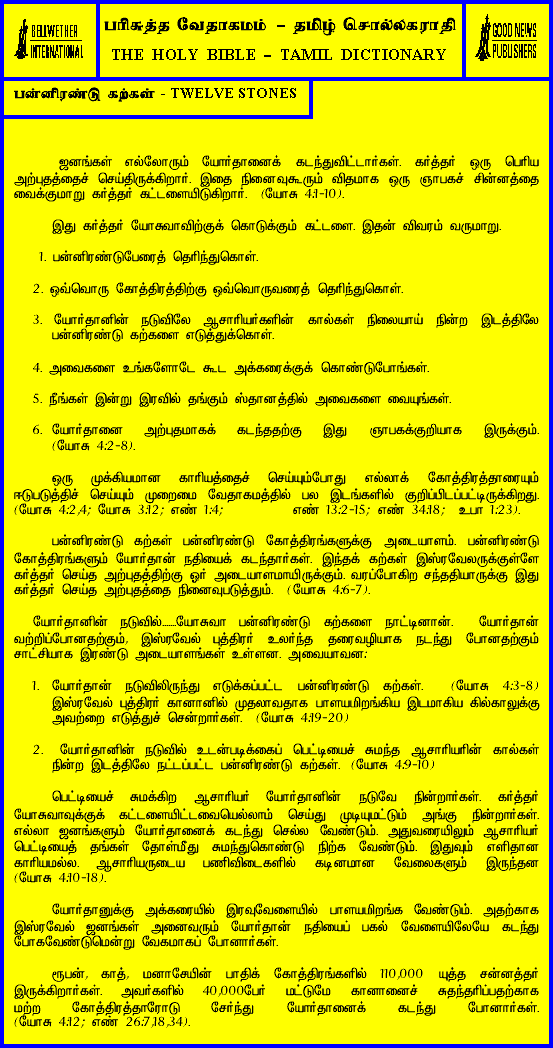 BELLWETHER
INTERNATIONAL
பரிசுத்த வேதாகமம் - தமிழ் சொல்லகராதி
THE HOLY BIBLE - TAMIL DICTIONARY
GOOD NEWS
PUBLISHERS
பன்னிரண்டு கற்கள் - TWELVE STONES
ஜனங்கள் எல்லோரும் யோர்தானைக் கடந்துவிட்டார்கள். கர்த்தர் ஒரு பெரிய
அற்புதத்தைச் செய்திருக்கிறார். இதை நினைவுகூரும் விதமாக ஒரு ஞாபகச் சின்னத்தை
வைக்குமாறு கர்த்தர் கட்டளையிடுகிறார். (யோசு 4:1-10).
இது கர்த்தர் யோசுவாவிற்குக் கொடுக்கும் கட்டளை. இதன் விவரம் வருமாறு.
1. பன்னிரண்டுபேரைத் தெரிந்துகொள்.
2. ஒவ்வொரு கோத்திரத்திற்கு ஒவ்வொருவரைத் தெரிந்துகொள்.
3. யோர்தானின் நடுவிலே ஆசாரியர்களின் கால்கள் நிலையாய் நின்ற இடத்திலே
பன்னிரண்டு கற்களை எடுத்துக்கொள்.
4. அவைகளை உங்களோடே கூட அக்கரைக்குக் கொண்டுபோங்கள்.
5. நீங்கள் இன்று இரவில் தங்கும் ஸ்தானத்தில் அவைகளை வையுங்கள்.
6. யோர்தானை அற்புதமாகக் கடந்ததற்கு இது ஞாபகக்குறியாக இருக்கும்.
(யோசு 4:2-8).
ஒரு முக்கியமான காரியத்தைச் செய்யும்போது எல்லாக் கோத்திரத்தாரையும்
ஈடுபடுத்திச் செய்யும் முறைமை வேதாகமத்தில் பல இடங்களில் குறிப்பிடப்பட்டிருக்கிறது.
(யோசு 4:2,4; யோசு 3:12; எண் 1:4; எண் 13:2-15; எண் 34:18; உபா 1:23).
பன்னிரண்டு கற்கள் பன்னிரண்டு கோத்திரங்களுக்கு அடையாளம். பன்னிரண்டு
கோத்திரங்களும் யோர்தான் நதியைக் கடந்தார்கள். இந்தக் கற்கள் இஸ்ரவேலருக்குள்ளே
கர்த்தர் செய்த அற்புதத்திற்கு ஓர் அடையாளமாயிருக்கும். வரப்போகிற சந்ததியாருக்கு இது
கர்த்தர் செய்த அற்புதத்தை நினைவுபடுத்தும். (யோசு 4:6-7).
யோர்தானின் நடுவில்......யோசுவா பன்னிரண்டு கற்களை நாட்டினான். யோர்தான்
வற்றிப்போனதற்கும், இஸ்ரவேல் புத்திரர் உலர்ந்த தரைவழியாக நடந்து போனதற்கும்
சாட்சியாக இரண்டு அடையாளங்கள் உள்ளன. அவையாவன:
1. யோர்தான் நடுவிலிருந்து எடுக்கப்பட்ட பன்னிரண்டு கற்கள். (யோசு 4:3-8)
இஸ்ரவேல் புத்திரர் கானானில் முதலாவதாக பாளயமிறங்கிய இடமாகிய கில்காலுக்கு
அவற்றை எடுத்துச் சென்றார்கள். (யோசு 4:19-20)
2. யோர்தானின் நடுவில் உடன்படிக்கைப் பெட்டியைச் சுமந்த ஆசாரியரின் கால்கள்
நின்ற இடத்திலே நட்டப்பட்ட பன்னிரண்டு கற்கள். (யோசு 4:9-10)
பெட்டியைச் சுமக்கிற ஆசாரியர் யோர்தானின் நடுவே நின்றார்கள். கர்த்தர்
யோசுவாவுக்குக் கட்டளையிட்டவையெல்லாம் செய்து முடியுமட்டும் அங்கு நின்றார்கள்.
எல்லா ஜனங்களும் யோர்தானைக் கடந்து செல்ல வேண்டும். அதுவரையிலும் ஆசாரியர்
பெட்டியைத் தங்கள் தோள்மீது சுமந்துகொண்டு நிற்க வேண்டும். இதுவும் எளிதான
காரியமல்ல. ஆசாரியருடைய பணிவிடைகளில் கடினமான வேலைகளும் இருந்தன
(யோசு 4:10-18).
யோர்தானுக்கு அக்கரையில் இரவுவேளையில் பாளயமிறங்க வேண்டும். அதற்காக
இஸ்ரவேல் ஜனங்கள் அனைவரும் யோர்தான் நதியைப் பகல் வேளையிலேயே கடந்து
போகவேண்டுமென்று வேகமாகப் போனார்கள்.
ரூபன், காத், மனாசேயின் பாதிக் கோத்திரங்களில் 110,000 யுத்த சன்னத்தர்
இருக்கிறார்கள். அவர்களில் 40,000பேர் மட்டுமே கானானைச் சுதந்தரிப்பதற்காக
மற்ற கோத்திரத்தாரோடு சேர்ந்து யோர்தானைக் கடந்து போனார்கள்.
(யோசு 4:12; எண் 26:7,18,34).